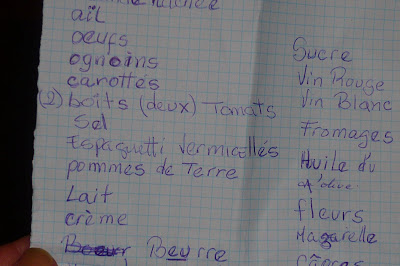 aïl
oeufs
ognoins
carottes
(2) boîts (deux) Tomats
Sel
Espaguetti Vermicellés
pommes de Terre
Lait
crème
Beurre
Sucre
Vin Rouge
Vin Blanc
Fromages
Huile d'u
d'olive
fleurs
Mazarelle